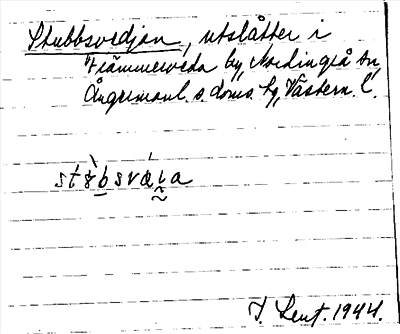 Stubbsvedjan, utslåtter i
Främmerveda by, Nordingrå sn,
Ångermanl. s. doms. hg, Västern. l.
stɤ̀bsvæi̯a
J. Lent. 1944.